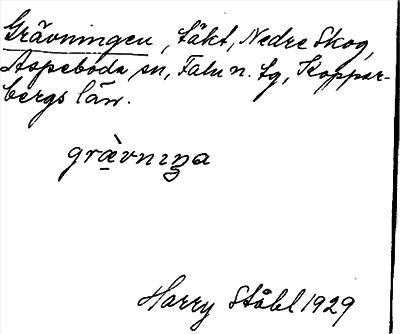 Grävningen, täkt, Nedre Skog,
Aspeboda sn, Falu n. tg, Koppar-
bergs län.
grä̀vnıŋa
Harry Ståhl 1929